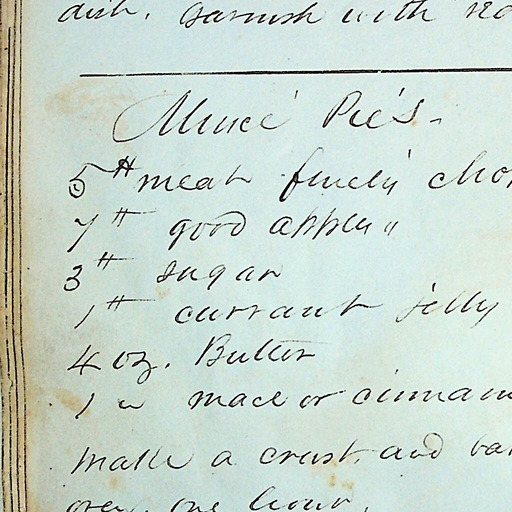 dish. Garnish with red
Mince Pie's.
5 # meat finely chop
7 # good apples "
3 # sugar
1 # currant jelly
4 oz. Butter
1 " mace or cinnam
make a crust, and ba
one hour.